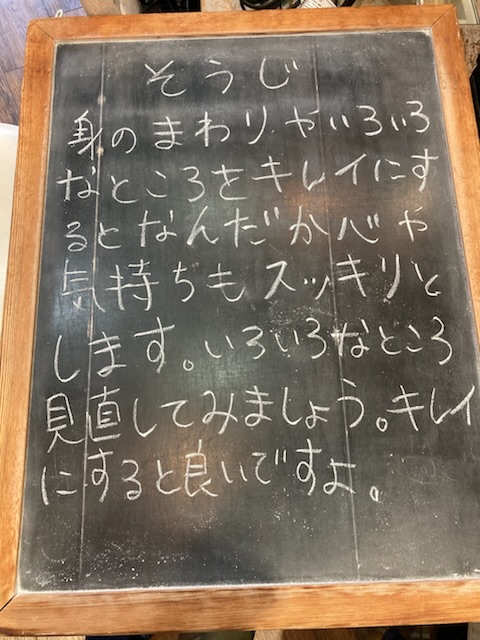 そうじ
身のまわりやいろいろ
なところをキレイにす
るとなんだか心や
気持ちもスッキリと
します。いろいろなところ
見直してみましょう。キレイ
にすると良いですよ。